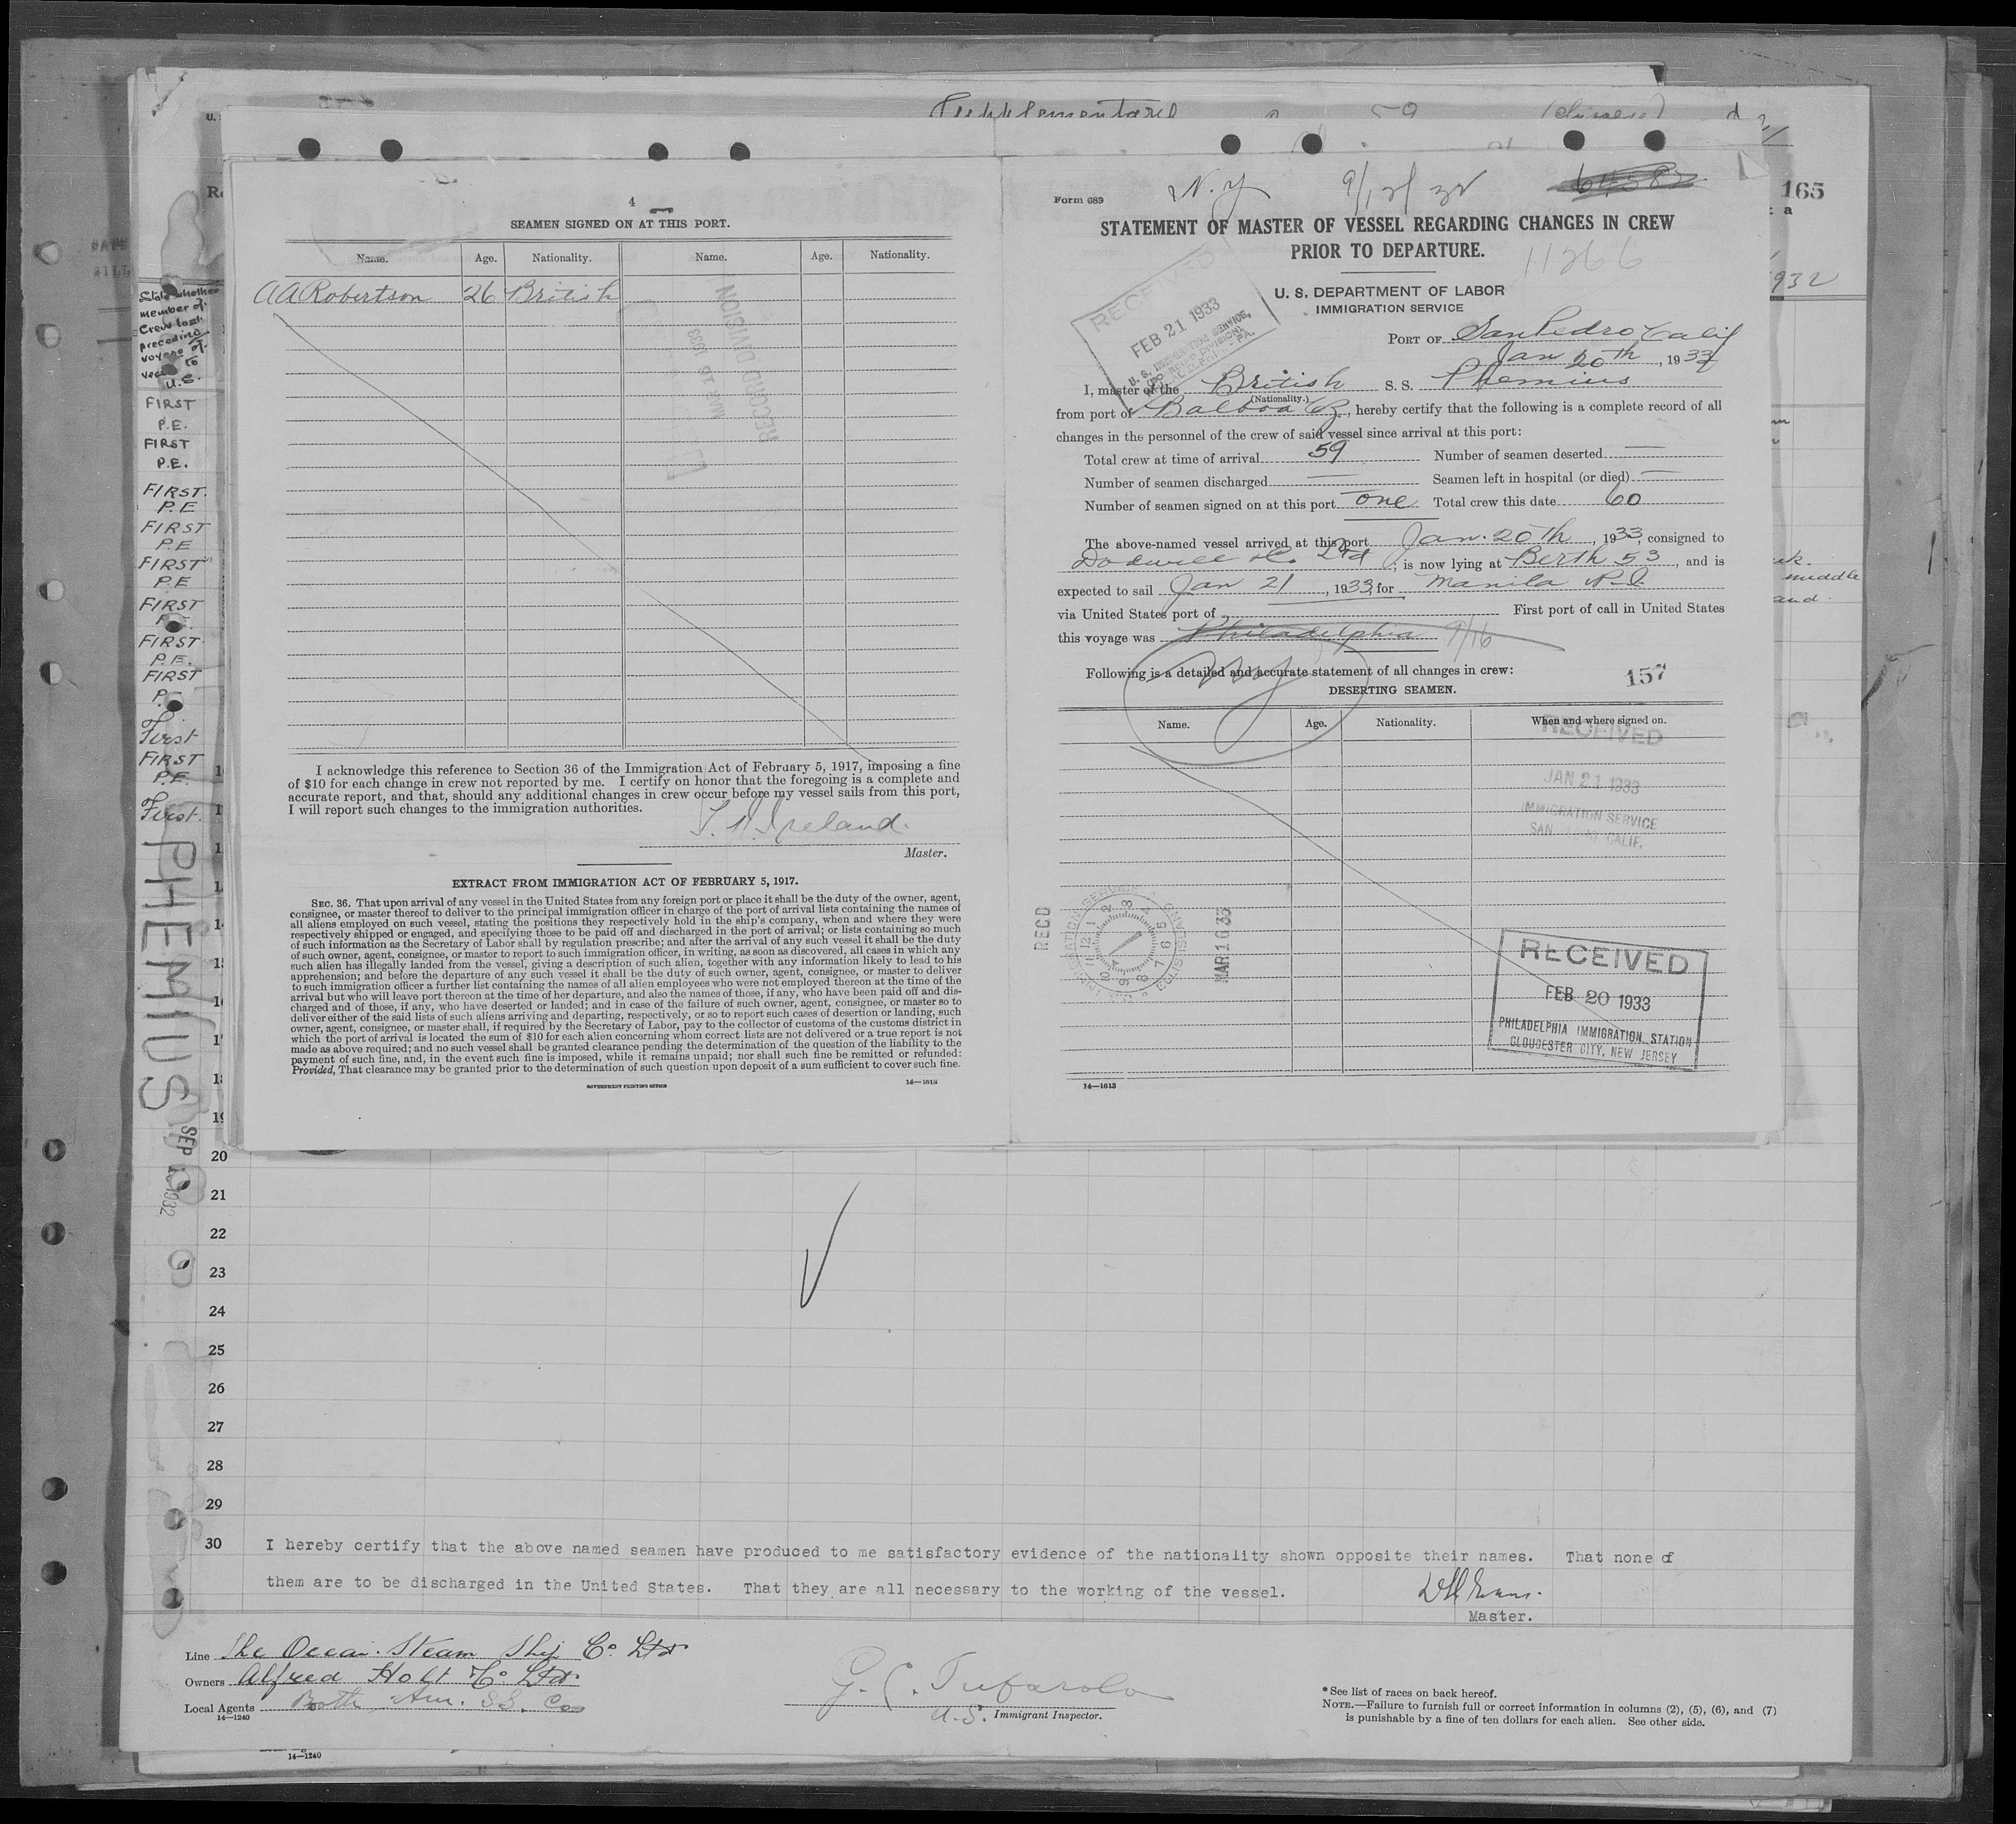 165
1932
State whether
member of
Crew last
preceding
voyage of
vessel to
U.S.
FIRST
P.E.
FIRST
P.E.
FIRST.
P.E
FIRST
P.E
FIRST
P.E
FIRST
FIRST
P.E.
FIRST
First
FIRST
P.E
First.
PHEMIUS
SEP
1932
4
SEAMEN SIGNED ON AT THIS PORT.
Name. Age. Nationality. Name. Age. Nationality.
A A Robertson 26 British
RECORD DIVISION
MAR 16 1933
I acknowledge this reference to Section 36 of the Immigration Act of February 5, 1917, imposing a fine
of $10 for each change in crew not reported by me. I certify on honor that the foregoing is a complete and
accurate report, and that, should any additional changes in crew occur before my vessel sails from this port,
I will report such changes to the immigration authorities.
Ireland.
Master.
EXTRACT FROM IMMIGRATION ACT OF FEBRUARY 5, 1917.
SEC. 36. That upon arrival of any vessel in the United States from any foreign port or place it shall be the duty of the owner, agent,
consignee, or master thereof to deliver to the principal immigration officer in charge of the port of arrival lists containing the names of
all aliens employed on such vessel, stating the positions they respectively hold in the ship's company, when and where they were
respectively shipped or engaged, and specifying those to be paid off and discharged in the port of arrival; or lists containing so much
of such information as the Secretary of Labor shall by regulation prescribe; and after the arrival of any such vessel it shall be the duty
of such owner, agent, consignee, or master to report to such immigration officer, in writing, as soon as discovered, all cases in which any
such alien has illegally landed from the vessel, giving a description of such alien, together with any information likely to lead to his
apprehension; and before the departure of any such vessel it shall be the duty of such owner, agent, consignee, or master to deliver
to such immigration officer a further list containing the names of all alien employees who were not employed thereon at the time of the
arrival but who will leave port thereon at the time of her departure, and also the names of those, if any, who have been paid off and dis-
charged and of those, if any, who have deserted or landed; and in case of the failure of such owner, agent, consignee, or master so to
deliver either of the said lists of such aliens arriving and departing, respectively, or so to report such cases of desertion or landing, such
owner, agent, consignee, or master shall, if required by the Secretary of Labor, pay to the collector of customs of the customs district in
which the port of arrival is located the sum of $10 for each alien concerning whom correct lists are not delivered or a true report is not
made as above required; and no such vessel shall be granted clearance pending the determination of the question of the liability to the
payment of such fine, and, in the event such fine is imposed, while it remains unpaid; nor shall such fine be remitted or refunded:
Provided, That clearance may be granted prior to the determination of such question upon deposit of a sum sufficient to cover such fine.
GOVERNMENT PRINTING OFFICE 14—1613
N.Y 9/12/32
Form 689
STATEMENT OF MASTER OF VESSEL REGARDING CHANGES IN CREW
PRIOR TO DEPARTURE.
11266
U. S. DEPARTMENT OF LABOR
IMMIGRATION SERVICE
RECEIVED
FEB 21 1933
PORT OF San Pedro Calif
Jan 20th, 1933
I, master of the British S. S. Phemius
(Nationality.)
from port of Balboa CZ, hereby certify that the following is a complete record of all
changes in the personnel of the crew of said vessel since arrival at this port:
Total crew at time of arrival 59 Number of seamen deserted —
Number of seamen discharged — Seamen left in hospital (or died) —
Number of seamen signed on at this port one Total crew this date 60
The above-named vessel arrived at this port Jan. 20th, 1933, consigned to
Dodwell Co. Ltd; is now lying at Berth 53, and is
expected to sail Jan 21, 1933, for Manila P.I.
via United States port of First port of call in United States
this voyage was Philadelphia 9/16
NY
Following is a detailed and accurate statement of all changes in crew:
157
DESERTING SEAMEN.
Name. Age. Nationality. When and where signed on.
RECEIVED
JAN 21 1933
IMMIGRATION SERVICE
SAN PEDRO CALIF.
RECD
MAR 16 33
RECEIVED
FEB 20 1933
PHILADELPHIA IMMIGRATION STATION
GLOUCESTER CITY, NEW JERSEY
14—1613
20
21
22
23
24
25
26
27
28
29
30 I hereby certify that the above named seamen have produced to me satisfactory evidence of the nationality shown opposite their names. That none of
them are to be discharged in the United States. That they are all necessary to the working of the vessel.
Master.
Line The Ocean Steam Ship Co. Ltd
Owners Alfred Holt & Co Ltd
Local Agents Booth Am. S.S. Co
14—1240
G. C. Tufarolo
U.S. Immigrant Inspector.
* See list of races on back hereof.
NOTE.—Failure to furnish full or correct information in columns (2), (5), (6), and (7)
is punishable by a fine of ten dollars for each alien. See other side.
14—1240